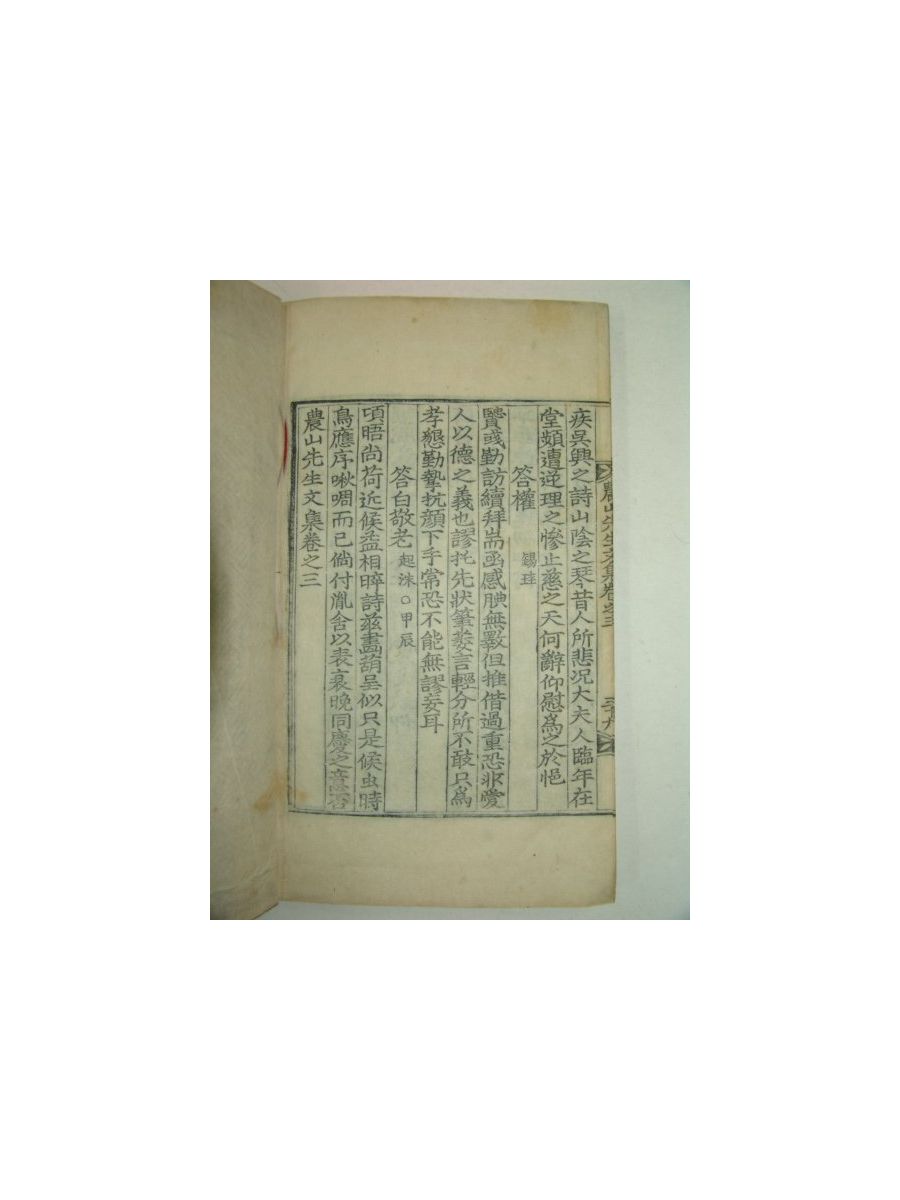 農山先生文集卷之三
疾吳興之詩山陰之琴昔人所悲况大夫人臨年在
堂頻遭逆理之慘止慈之天何辭仰慰爲之於悒
答權 錫珪
賢彧勤訪續拜耑函感腆無斁但推借過重恐非愛
人以德之義也謬托先狀筆萎言輕分所不敢只爲
孝懇勤摯抗顔下手常恐不能無謬妄耳
答白敬老 起洙○甲辰
頃晤尚荷近候益相晬詩玆畵葫呈似只是候虫時
鳥應序啾啁而已倘付胤舍以表衰晚同慶之意否
農山先生文集卷之三